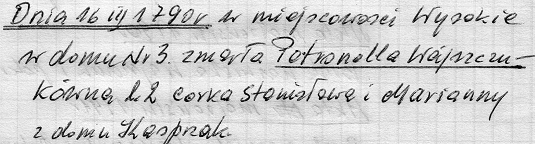 Dnia 16 III 1790r w miejscowości Wysokie
w domu Nr 3. zmarła Petronella Wajszczu-
kówna l. 2 córka Stanisława i Marianny
z domu Kasprzak